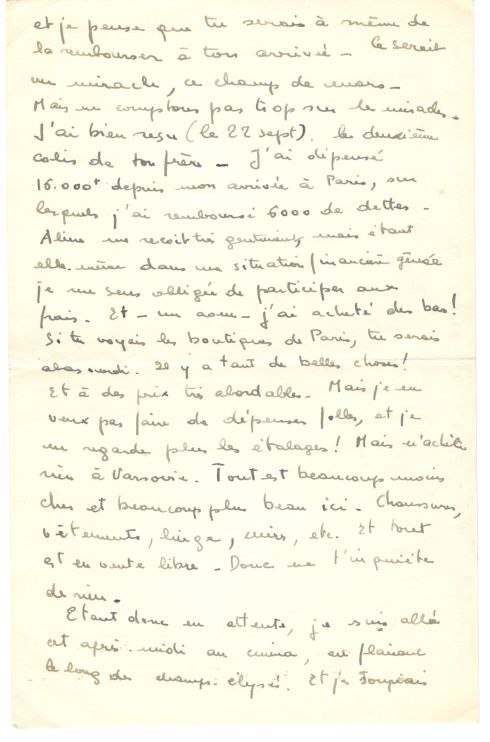 et je pense que tu serais à même de
la rembourser à ton arrivée – Ce serait
un miracle, ce champ de mars –
Mais ne comptons pas trop sur les miracles.
J'ai bien reçu (le 22 sept). le deuxième
colis de ton frère – J'ai dépensé
16.000 depuis mon arrivée à Paris, sur
lesquels j'ai remboursé 6000 de dettes –
Aline me reçoit très gentiment, mais étant
elle-même dans une situation financière gênée
je me sens obligée de participer aux
frais. Et – un aveu – j'ai acheté des bas!
Si tu voyais les boutiques de Paris, tu serais
abasourdi. Il y a tant de belles choses!
Et à des prix très abordables – Mais je ne
veux pas faire de dépenses folles, et je
ne regarde plus les étalages! Mais n'achète
rien à Varsovie. Tout est beaucoup moins
cher et beaucoup plus beau ici. Chaussures,
vêtements, linge, cuirs, etc. Et tout
est en vente libre – Donc ne t'inquiète
de rien.
Etant donc en attente, je suis allée
cet après-midi au cinéma, en flânant
le long des champs-élysés. Et je